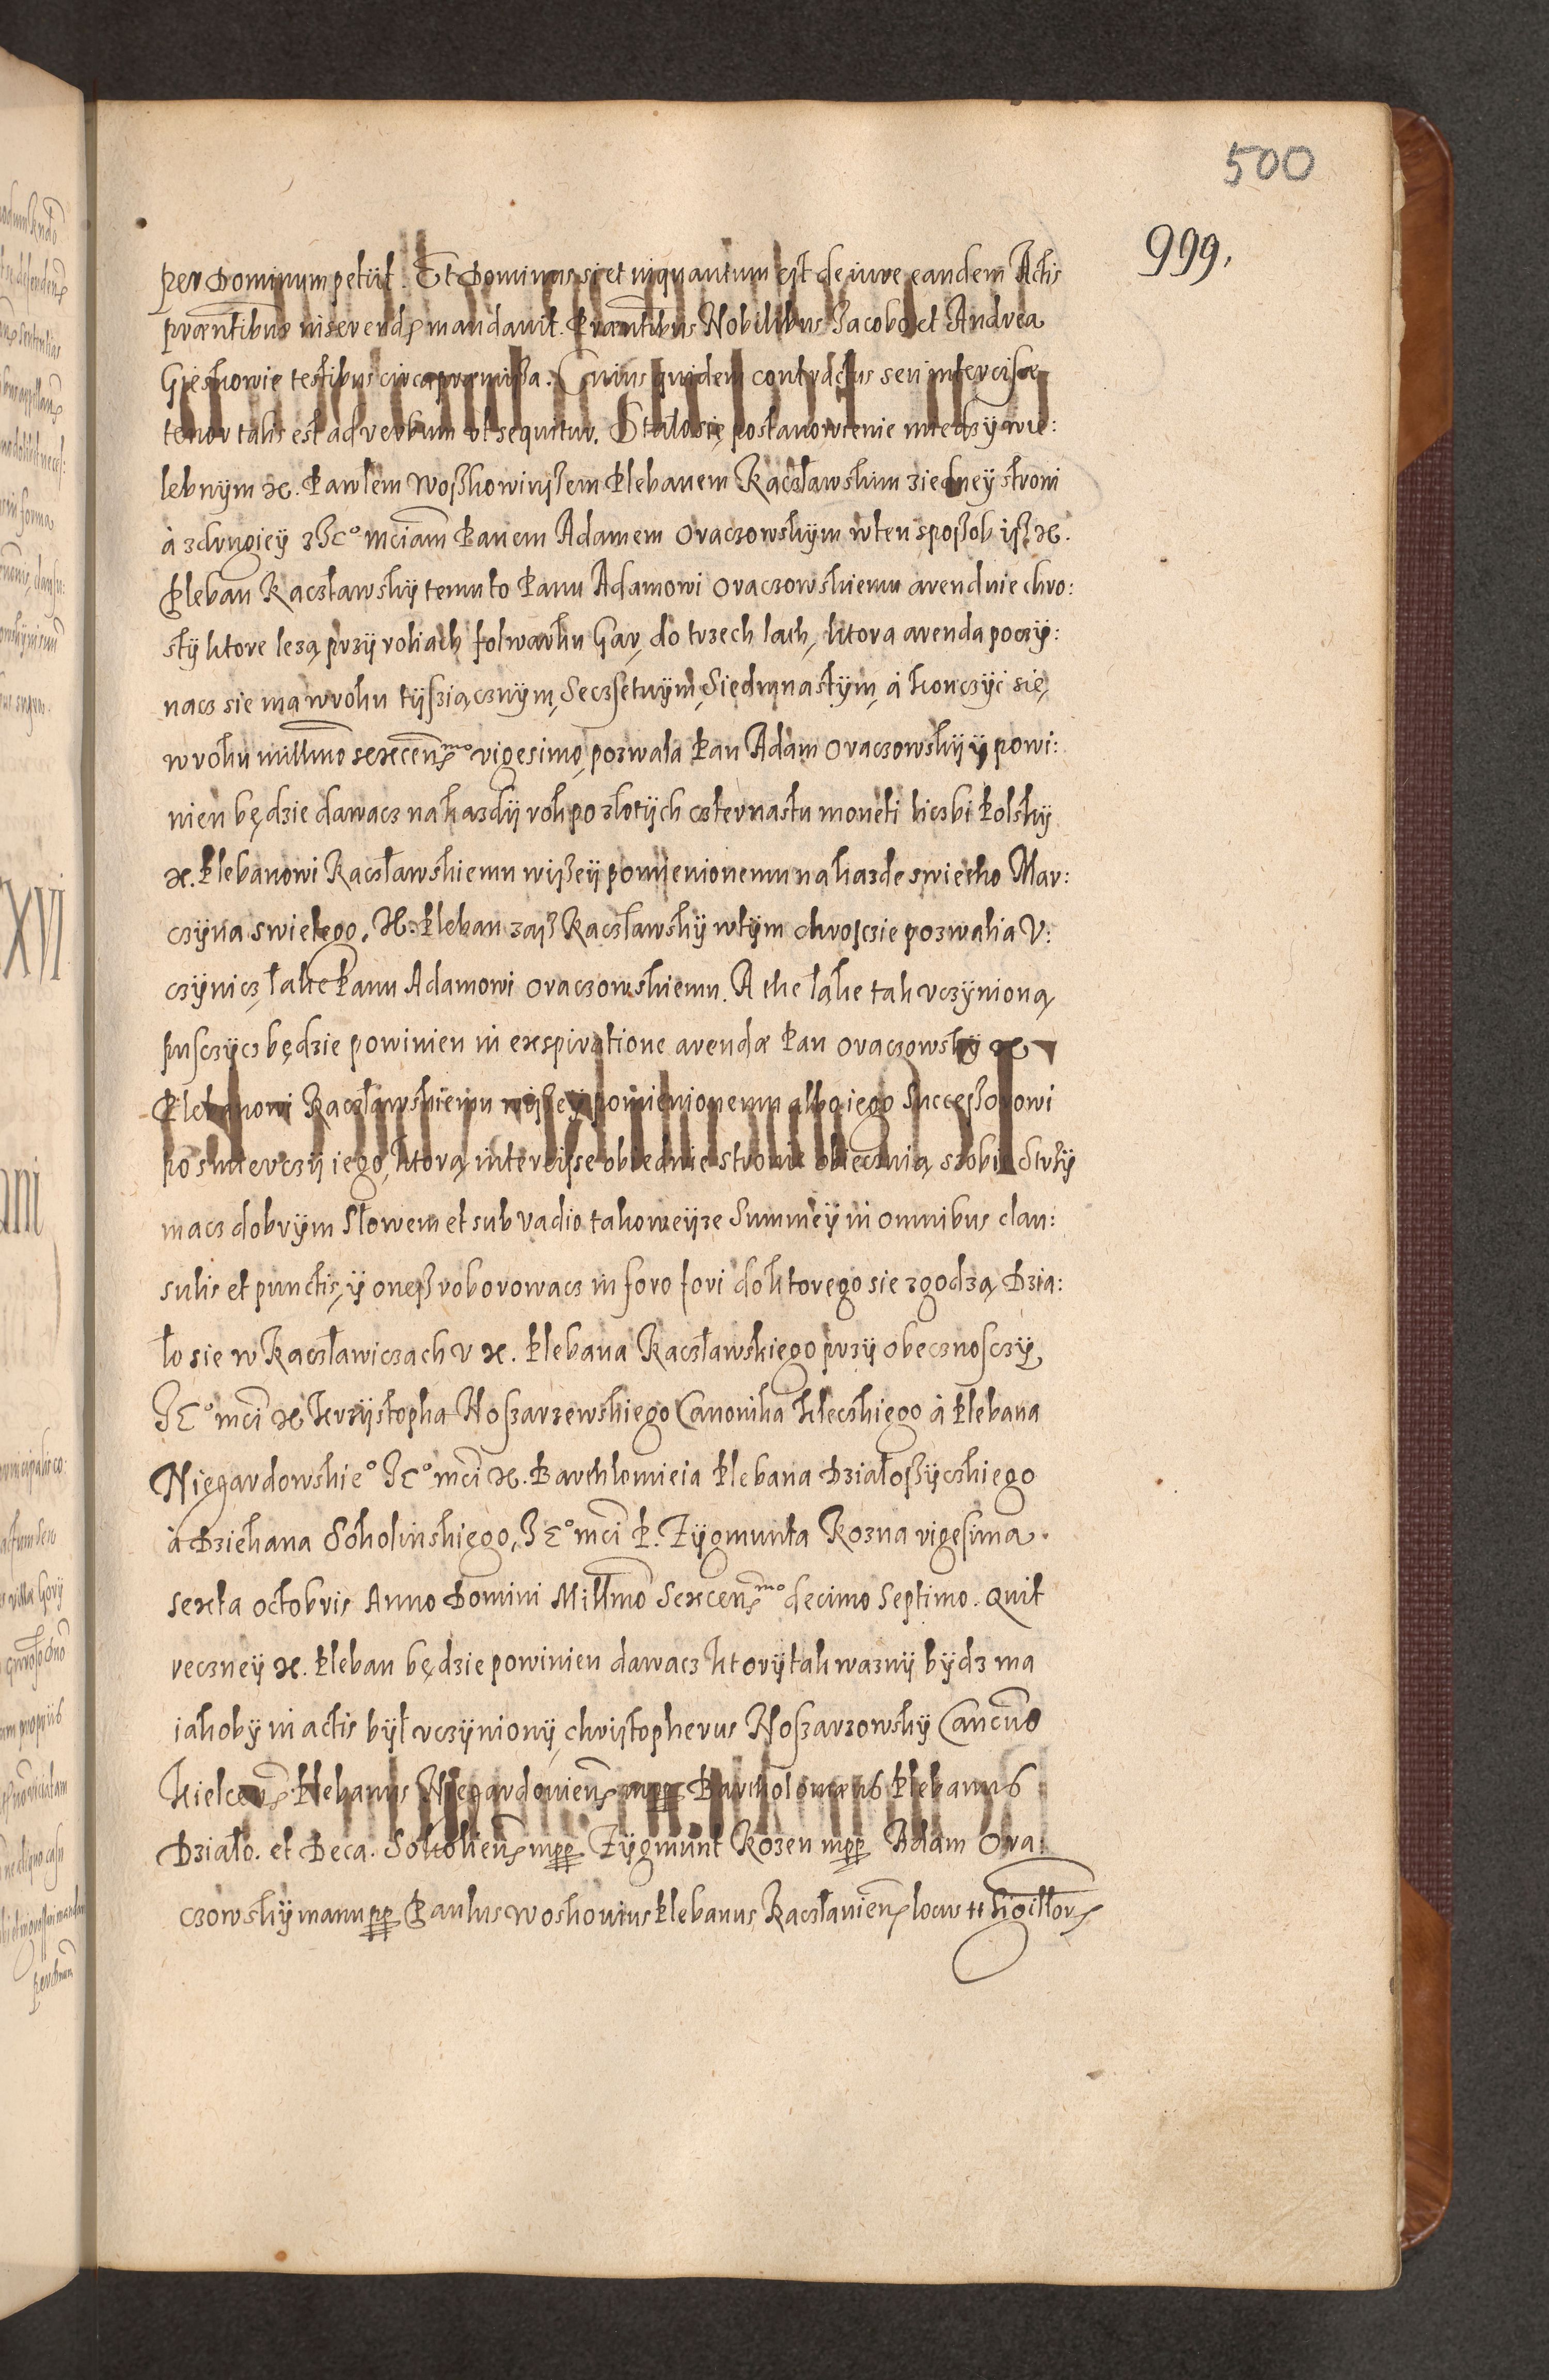 500
999.
per Dominum petiit. Et Dominus si et inquantum est de iure eandem Actis
præntibus inserend mandavit. Præntibus Nobilibus Jacobo et Andrea
Gieskowie testibus circa præmissa. Cuius quidem contractus seu intercisæ
tenor talis est ad verbum ut sequitur. Stalo się postanowienie miedzy wie:
lebnÿm X. Pawłem Woszkowiuszem Plebanem Racsławskim z iedneÿ stroni
à z drugieÿ z Je° mciam Panem Adamem Oraczowskÿm w ten sposob isz X.
Pleban Racsławskÿ temu to Panu Adamowi Oraczowskiemu arenduie chro:
stÿ ktore lezą przÿ roliach folwarku Gar, do trzech lath, ktora arenda poczÿ:
nacz sie ma w roku tÿsziącznÿm, Seczsetnÿm, Siedmnastÿm, à konczÿć się
w roku millmo sexcen^mo vigesimo, pozwala Pan Adam Oraczowskÿ ÿ powi:
nien będzie dawacz na kazdÿ rok po złotÿch czternastu moneti liczbi Polskÿ
X. Plebanowi Racsławskiemu wÿszeÿ pomienionemu na kazde swietho Mar:
czÿna swietego. X. Pleban zasz Racsławskÿ w tÿm chrosczie pozwalia V:
czÿnicz łąke Panu Adamowi Oraczowskiemu. A the łąke tak vczÿnioną
pusczÿcz będzie powinien in exspiratione arendæ Pan Oraczowskÿ X.
Plebanowi Racsławskiemu wÿszeÿ pomienionemu albo iego Successorowi
po smierczÿ iego, ktorą intercisse obiedwie stronie obiecuią szobie strzÿ
macz dobrÿm Słowem et sub vadio takoweÿze Summeÿ in omnibus clau:
sulis et punctis, ÿ onesz roborowacz in foro fori do ktorego sie zgodzą. Dzia:
ło sie w Racsławiczach v X. Plebana Racsławskiego przÿ obecznosczÿ
Je° mci X Krzÿstopha Noszarzewskiego Canonika Kłecskiego à Plebana
Niegardowskie° Je° mci X. Barthlomieia Plebana Działoszÿczkiego
à Dziekana Sokolinskiego, Je° mci P. Zÿgmunta Kozna vigesima
sexta octobris Anno Domini Millmo Sexcen^mo decimo Septimo. Quit
recznÿ X. Pleban będzie powinien dawacz ktorÿ tak waznÿ bÿdz ma
iakobÿ in actis bÿł vczÿnionÿ, christopherus Noszarzowskÿ Cancus
Kielcen Plebanus Niegardovien mpp Bartholomæus Plebanus
Działo. et Deca. Sokolien mpp Zÿgmunt Kozen mpp Adam Ora:
czowskÿ manu pp Paulus Woskovius Plebanus Racslavien locus tt Sigillor